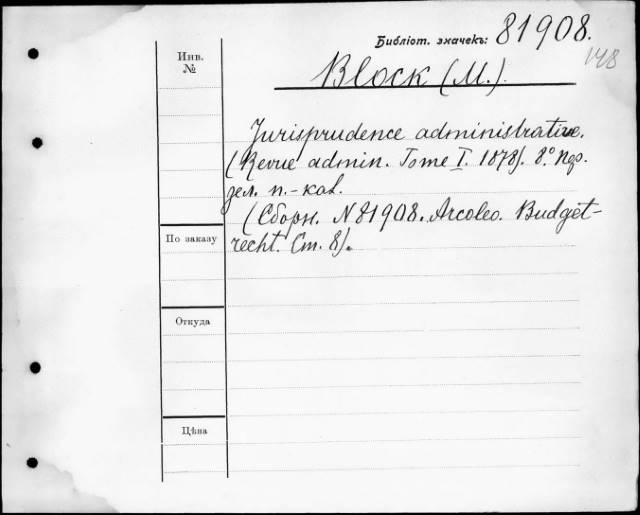 Библіот. значекъ: 81908.
148
Инв.
№
Block (M.).
Jurisprudence administrative.
(Revue admin. Tome I. 1878). 8.°
зел. п.-каl.
(Сборн. N 81908. Arcoleo. Budget-
recht. Ст. 8).
По заказу
Откуда
Цѣна